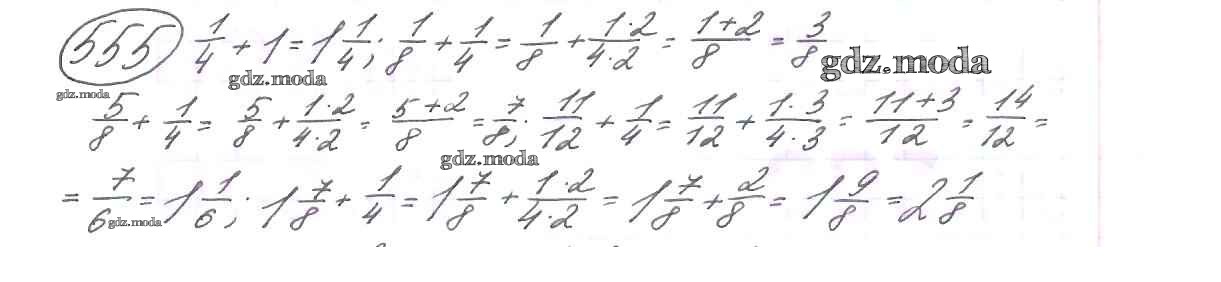 555 1/4 + 1 = 1 1/4; 1/8 + 1/4 = 1/8 + 1·2/4·2 = 1+2/8 = 3/8
gdz.moda gdz.moda gdz.moda
5/8 + 1/4 = 5/8 + 1·2/4·2 = 5+2/8 = 7/8; 11/12 + 1/4 = 11/12 + 1·3/4·3 = 11+3/12 = 14/12 =
gdz.moda
= 7/6 = 1 1/6; 1 7/8 + 1/4 = 1 7/8 + 1·2/4·2 = 1 7/8 + 2/8 = 1 9/8 = 2 1/8
gdz.moda